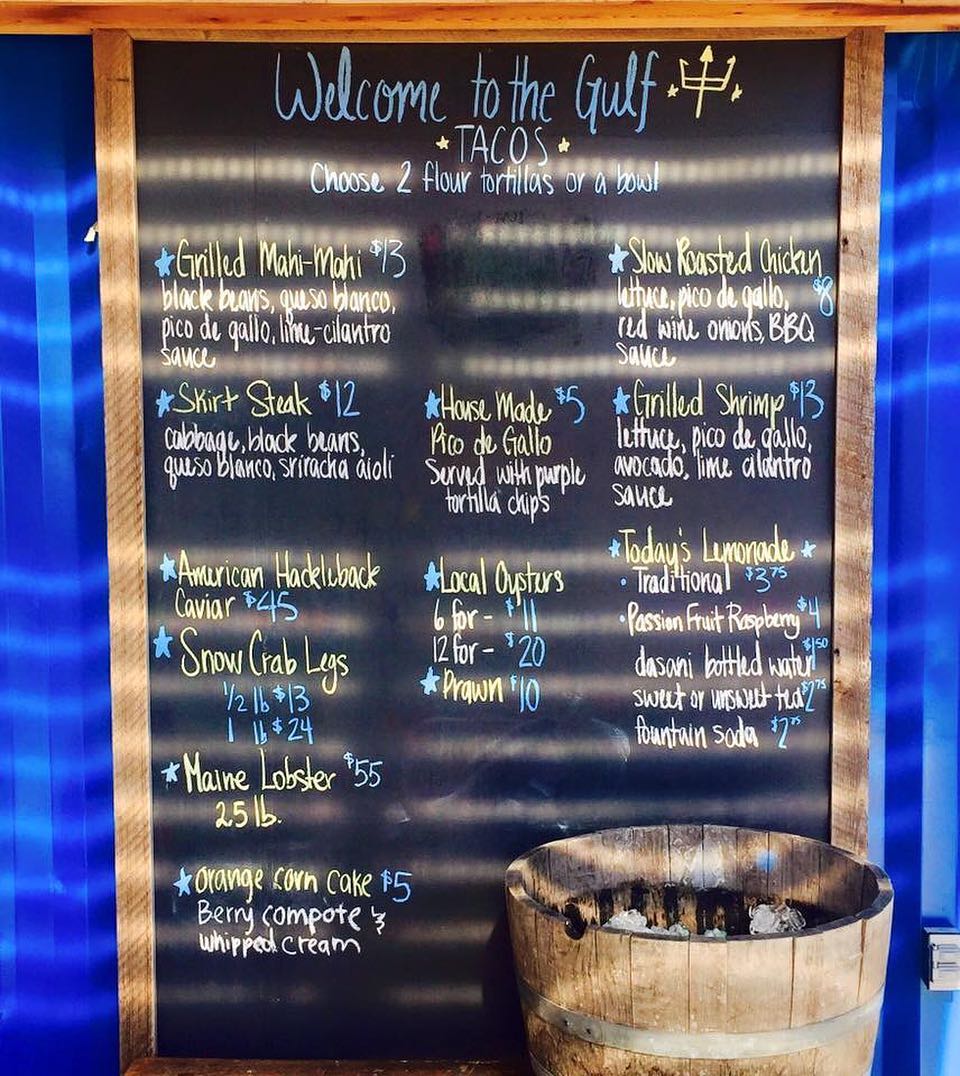 Welcome to the Gulf
TACOS
Choose 2 flour tortillas or a bowl
Grilled Mahi-Mahi $13
black beans, queso blanco,
pico de gallo, lime-cilantro
sauce
Skirt Steak $12
cabbage, black beans,
queso blanco, sriracha aioli
American Hackleback
Caviar $45
Snow Crab Legs
1/2 lb $13
1 lb $24
Maine Lobster $55
2.5 lb.
orange corn cake $5
Berry compote &
whipped cream
House Made $5
Pico de Gallo
Served with purple
tortilla chips
Local Oysters
6 for - $11
12 for - $20
Prawn $10
Slow Roasted Chicken
lettuce, pico de gallo, $8
red wine onions, BBQ
sauce
Grilled Shrimp $13
lettuce, pico de gallo,
avocado, lime cilantro
sauce
Today's Lemonade
• Traditional $3.75
• Passion Fruit Raspberry $4
dasani bottled water $1.50
sweet or unsweet tea $2.75
fountain soda $2.75